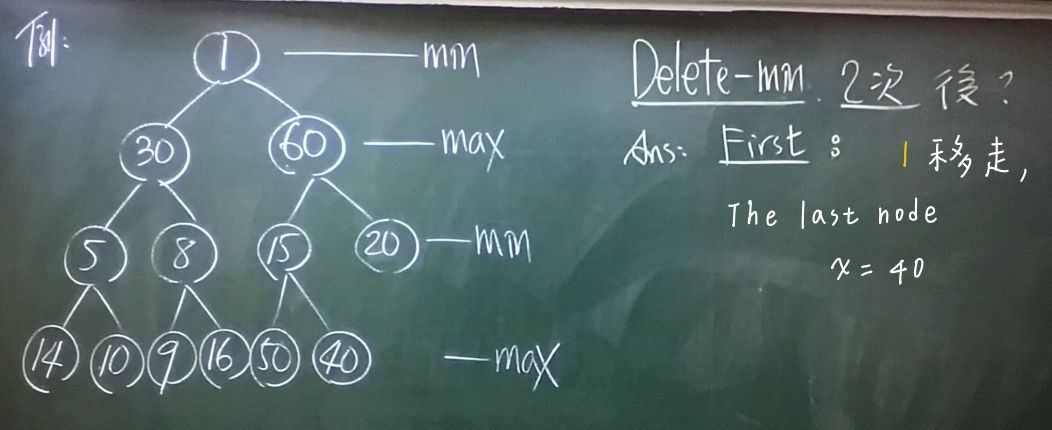 例:
1 min
30 60 max
5 8 15 20 min
14 10 9 16 50 40 max
Delete-min 2次 後?
Ans: First: 1 移走,
The last node
x = 40